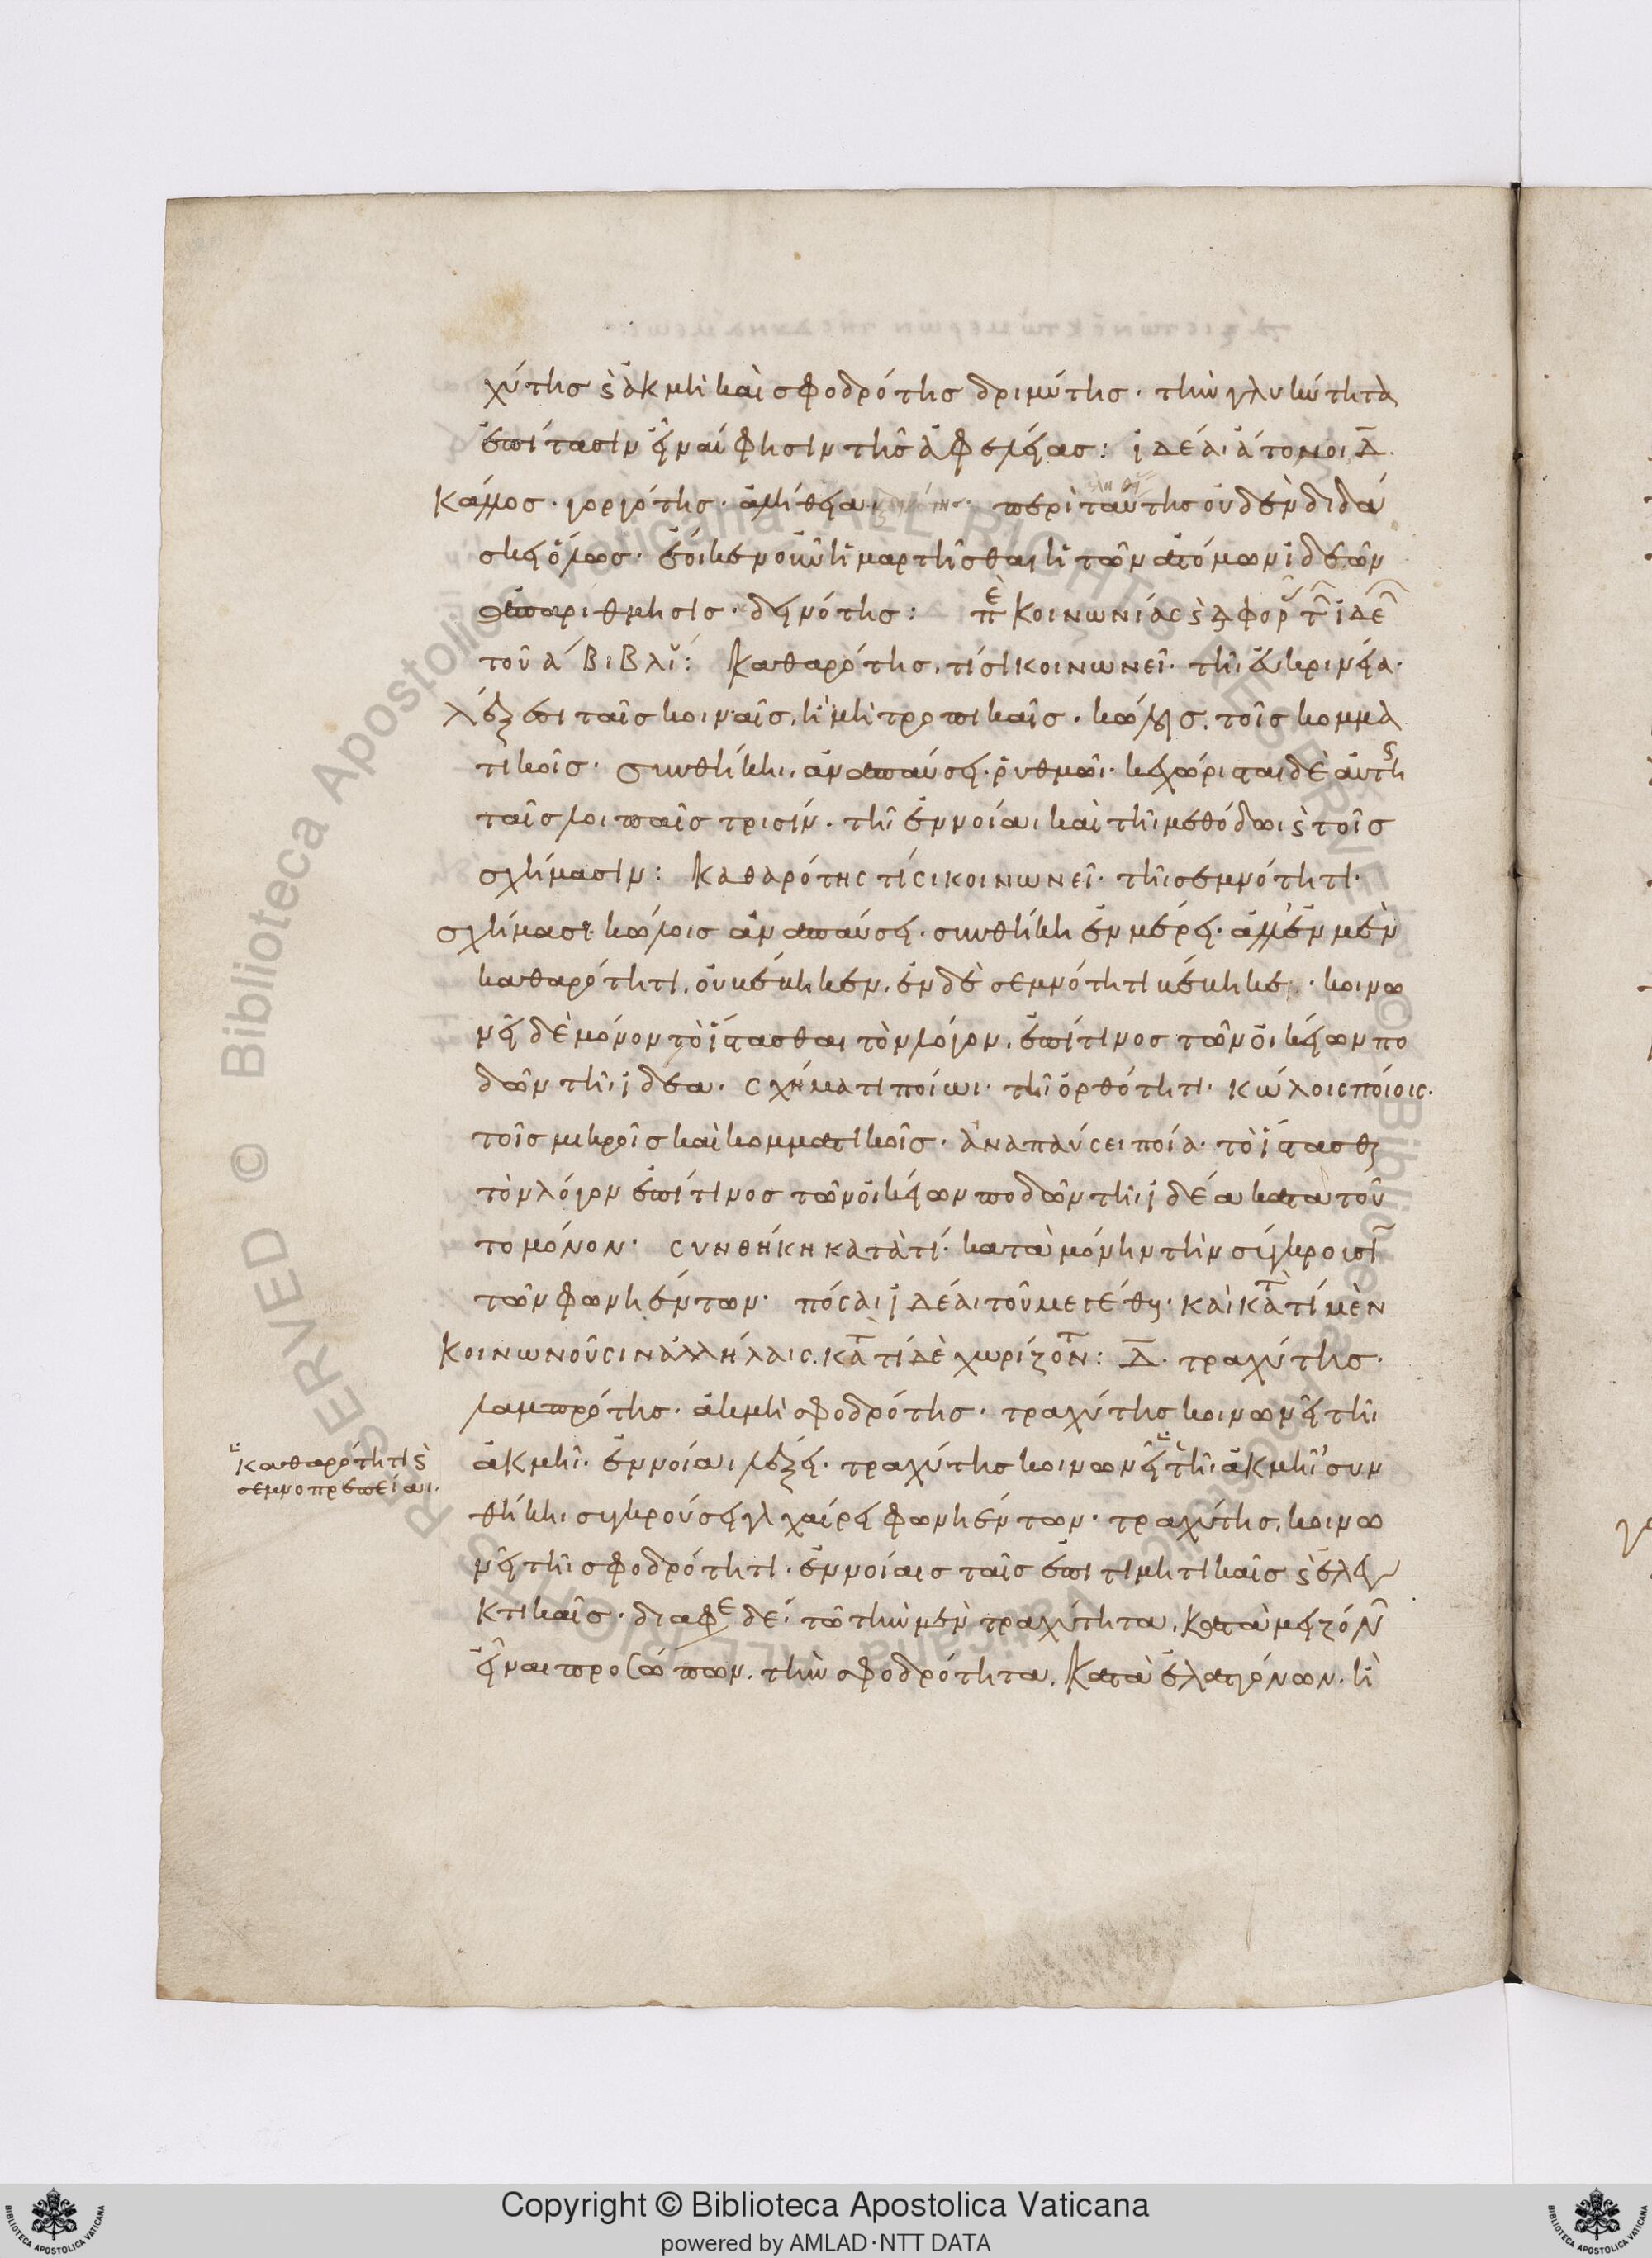 χύτης ϛ̀ ἀκμὴ καὶ σφοδρότης δριμύτης· τὴν γλυκύτητα
ἐπίτασιν εἶναί φησιν τῆς ἀφελείας: ἰδέαι ἄτομοι Δ̅·
κάλλος· γοργότης· ἀλήθεια· περὶ ταύτης οὐδὲν διδά
σκει ὅλως· ἔοικεν οὖν ἡμαρτῆσθαι ἡ τῶν ἀτόμων ἰδεῶν
ἀπαρίθμησις· δεινότης: π̅ὲ κοινωνίας ϛ̀ διαφορ τ ἰδε
τοῦ α΄ βιβλι: Καθαρότης, τίσι κοινωνεῖ· τῆι εὐκρινεία·
λέξεσι ταῖς κοιναῖς, ἢ μὴ τροπικαῖς· κώλοις, τοῖς κομμα
τικοῖς· συνθήκηι, ἀναπαύσει· ῥυθμῶι· κεχώρισται δὲ αὐτῆς
ταῖς λοιπαῖς τρισίν· τῆι ἐννοίαι καὶ τῆι μεθόδωι ϛ̀ τοῖς
σχήμασιν: Καθαρότης τίσι κοινωνεῖ· τῆι σεμνότητι·
σχήμασι κώλοις ἀναπαύσει· συνθήκη ἐν μέρει· ἀλλ' ἐν μὲν
καθαρότητι, οὐκ ἐκήκεν, ἐν δὲ σεμνότητι κέκηκε· κοινω
νεῖ δὲ μόνον τὸ ἵστασθαι τὸν λόγον, ἐπί τινος τῶν οἰκείων πο
δῶν τῆι ἰδέα· σχήματι ποίωι· τῆι ὀρθότητι· κώλοις ποίοις·
τοῖς μικροῖς καὶ κομματικοῖς· ἀναπαύσει ποία· τὸ ἵστασθ
τὸν λόγον ἐπί τινος τῶν οἰκείων ποδῶν τῆι ἰδέα κατὰ τοῦ
το μόνον· συνθήκη κατὰ τί· κατὰ μόνην τὴν σύγκρουσι
τῶν φωνηέντων· πόσαι ἰδέαι τοῦ μεγέθους· καὶ κατ τί μὲν
κοινωνοῦσιν ἀλλήλαις, κατ τί δὲ χωρίζοντ: Δ̅· τραχύτης·
λαμπρότης· ἀκμὴ σφοδρότης· τραχύτης κοινωνεῖ τῆι
ἀκμῆι· ἐννοίαι λέξει· τραχύτης κοινωνεῖ τῆι ἀκμῆι συν
καθαρότητι ϛ̀
σεμνοπρεπείαι·
θήκηι συγκρούσει χαίρει φωνηέντων· τραχύτης, κοινω
νεῖ τῆι σφοδρότητι· ἐννοίαις ταῖς ἐπιτιμητικαῖς ϛ̀ ἐλεγ
κτικαῖς· διαφε δέ· τῶ τὴν μὲν τραχύτητα, κατὰ μειζόν
εἶναι προσώπων, τὴν σφοδρότητα, κατὰ ἐλαττόνων· ἢ
Copyright © Biblioteca Apostolica Vaticana
powered by AMLAD·NTT DATA